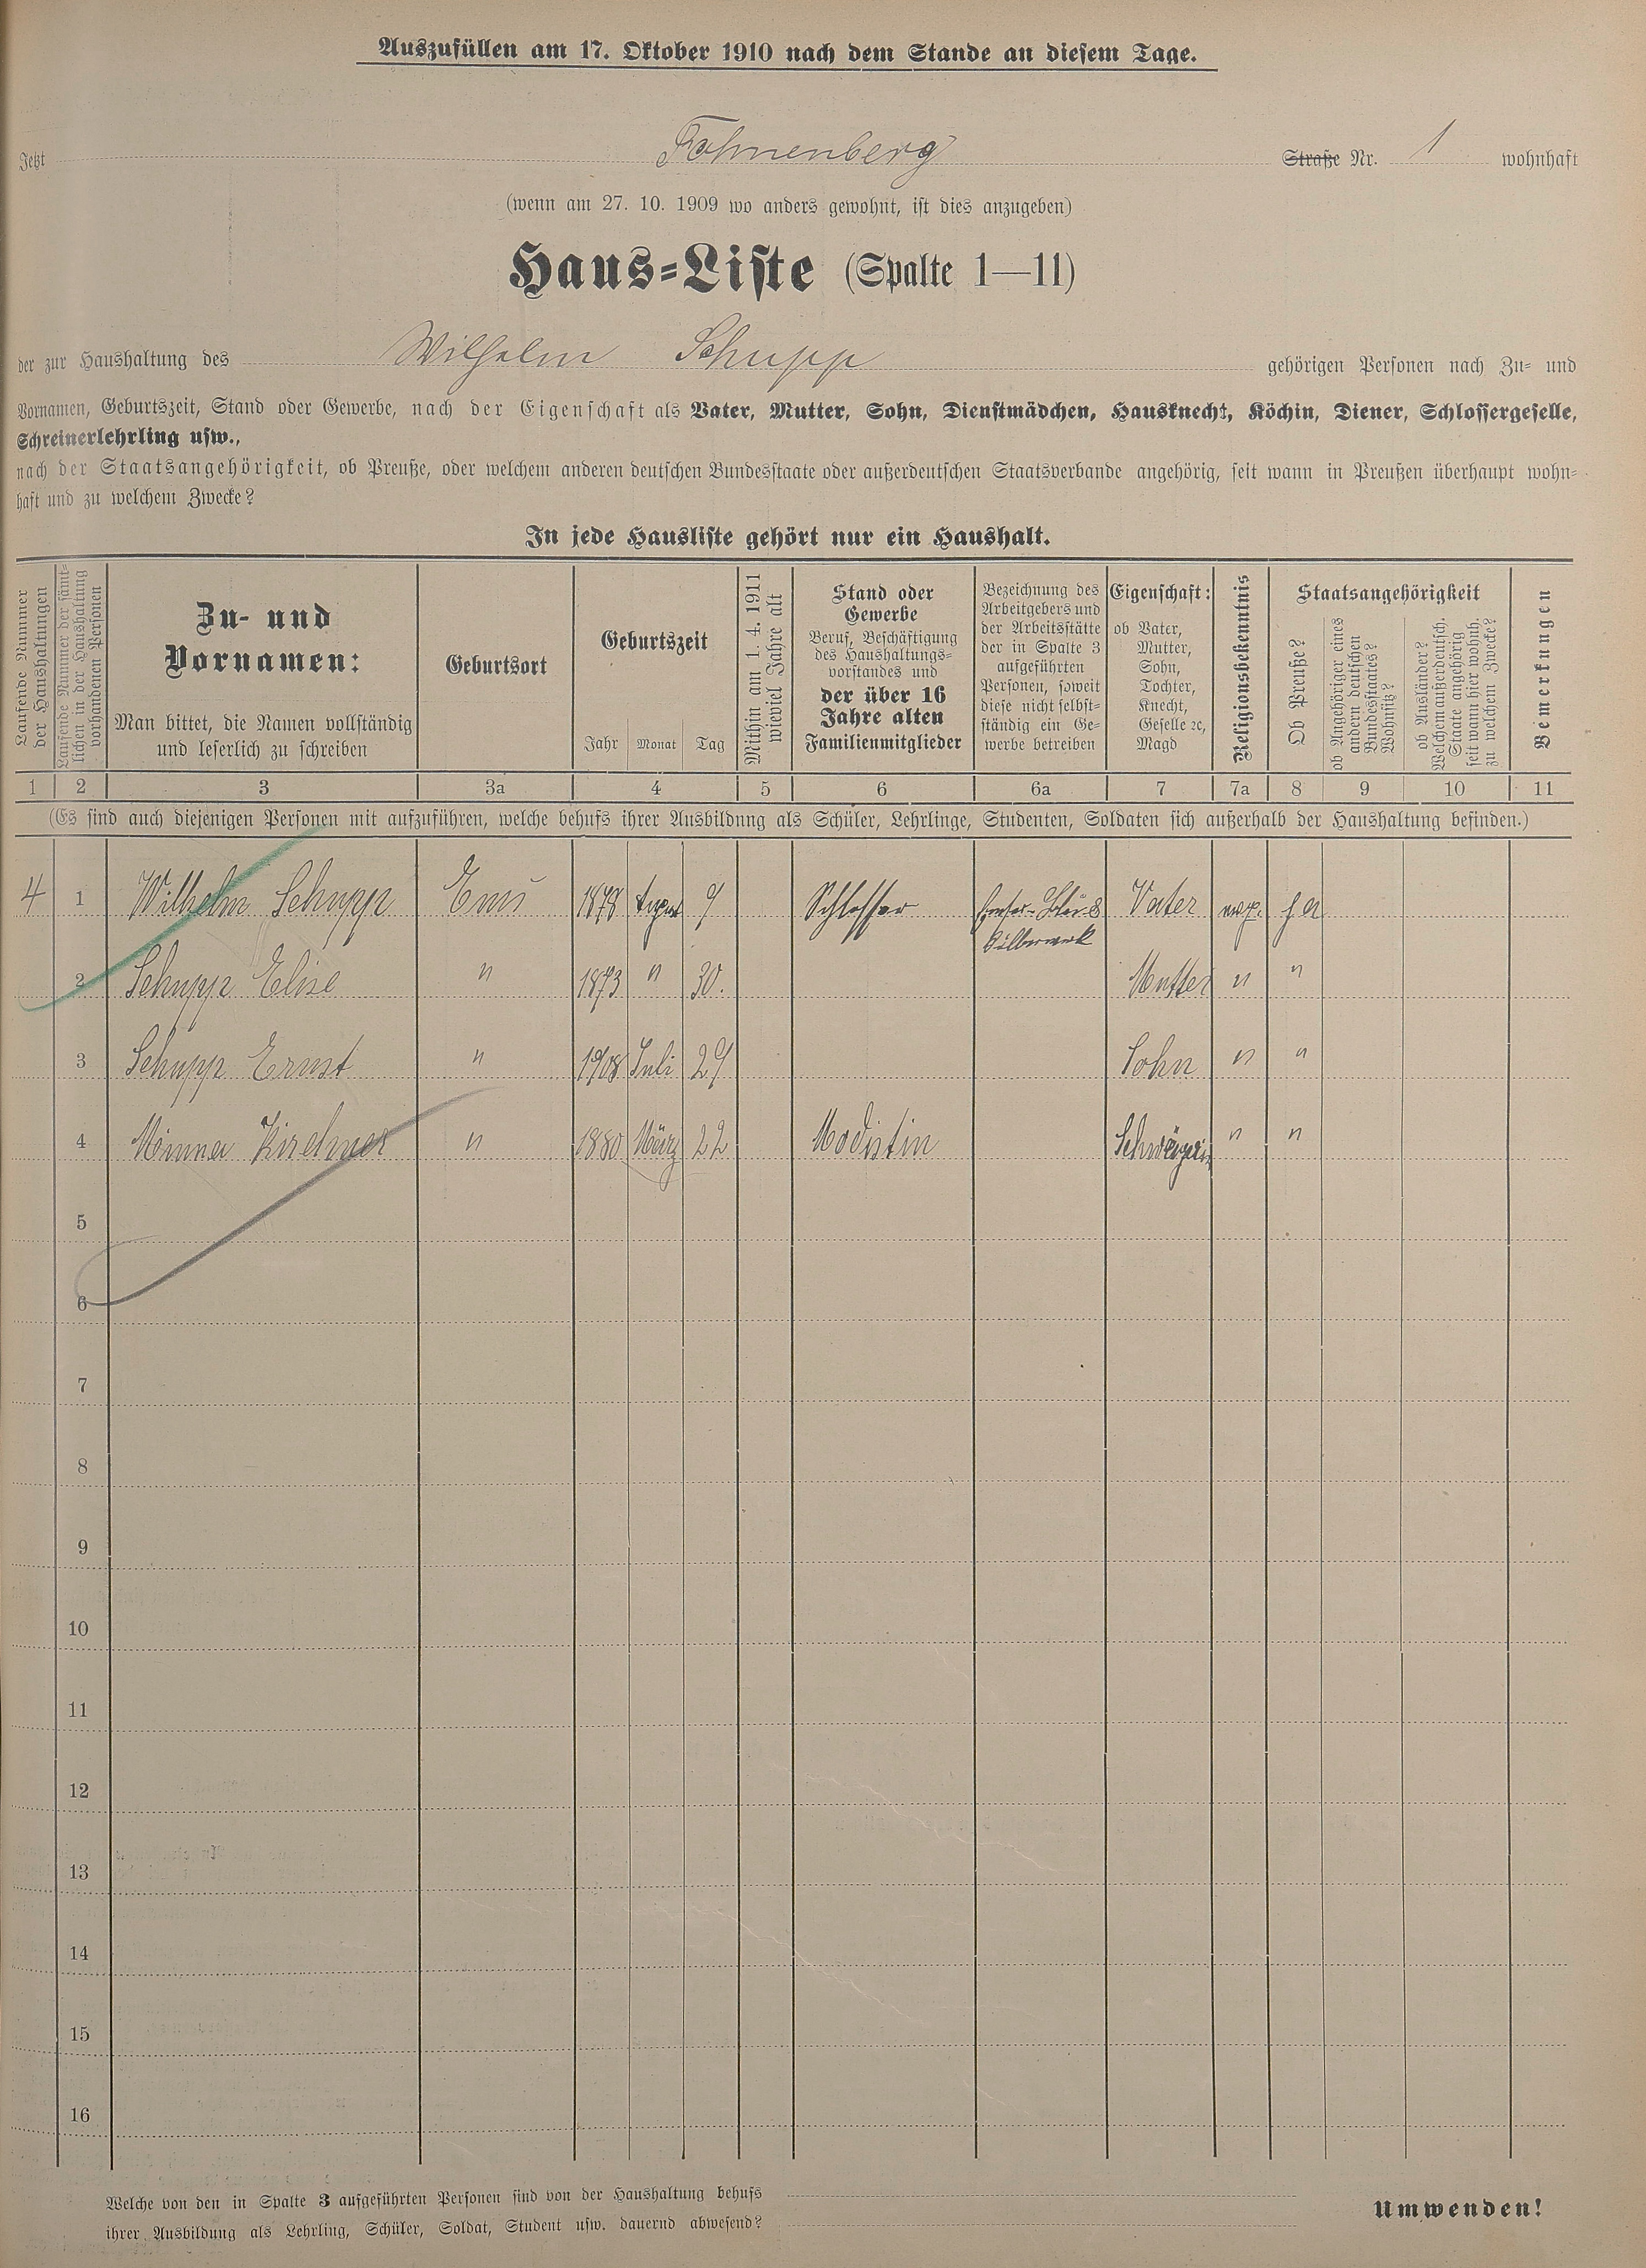 Auszufüllen am 17. Oktober 1910 nach dem Stande an diesem Tage.
Jetzt Fahnenberg Straße Nr. 1 wohnhaft
(wenn am 27. 10. 1909 wo anders gewohnt, ist dies anzugeben)
Haus-Liste (Spalte 1—11)
der zur Haushaltung des Wilhelm Schupp gehörigen Personen nach Zu- und
Vornamen, Geburtszeit, Stand oder Gewerbe, nach der Eigenschaft als Vater, Mutter, Sohn, Dienstmädchen, Hausknecht, Köchin, Diener, Schlossergeselle,
Schreinerlehrling usw.,
nach der Staatsangehörigkeit, ob Preuße, oder welchem anderen deutschen Bundesstaate oder außerdeutschen Staatsverbande angehörig, seit wann in Preußen überhaupt wohn-
haft und zu welchem Zwecke?
In jede Hausliste gehört nur ein Haushalt.
Laufende Nummer
der Haushaltungen
Laufende Nummer der sämt-
lichen in der Haushaltung
vorhandenen Personen
Zu- und
Vornamen:
Man bittet, die Namen vollständig
und leserlich zu schreiben
Geburtsort
Geburtszeit
Jahr Monat Tag
Mithin am 1. 4. 1911
wieviel Jahre alt
Stand oder
Gewerbe
Beruf, Beschäftigung
des Haushaltungs-
vorstandes und
der über 16
Jahre alten
Familienmitglieder
Bezeichnung des
Arbeitgebers und
der Arbeitsstätte
der in Spalte 3
aufgeführten
Personen, soweit
diese nicht selbst-
ständig ein Ge-
werbe betreiben
Eigenschaft:
ob Vater,
Mutter,
Sohn,
Tochter,
Knecht,
Geselle ꝛc,
Magd
Religionsbekenntnis
Staatsangehörigkeit
Ob Preuße?
ob Angehöriger eines
andern deutschen
Bundesstaates?
Wohnsitz?
ob Ausländer?
Welchem außerdeutsch.
Staate angehörig
seit wann hier wohnh.
zu welchem Zwecke?
Bemerkungen
1 2 3 3a 4 5 6 6a 7 7a 8 9 10 11
(Es sind auch diejenigen Personen mit aufzuführen, welche behufs ihrer Ausbildung als Schüler, Lehrlinge, Studenten, Soldaten sich außerhalb der Haushaltung befinden.)
4 1 Wilhelm Schupp Ems 1878 August 9 Schlosser Vater ja
2 Schupp Elise " 1873 " 30. Mutter " "
3 Schupp Ernst " 1908 Juli 29 Sohn " "
4 Minna Kirchner " 1880 März 22 Modistin Schwägerin " "
5
6
7
8
9
10
11
12
13
14
15
16
Welche von den in Spalte 3 aufgeführten Personen sind von der Haushaltung behufs
ihrer Ausbildung als Lehrling, Schüler, Soldat, Student usw. dauernd abwesend?
Umwenden!